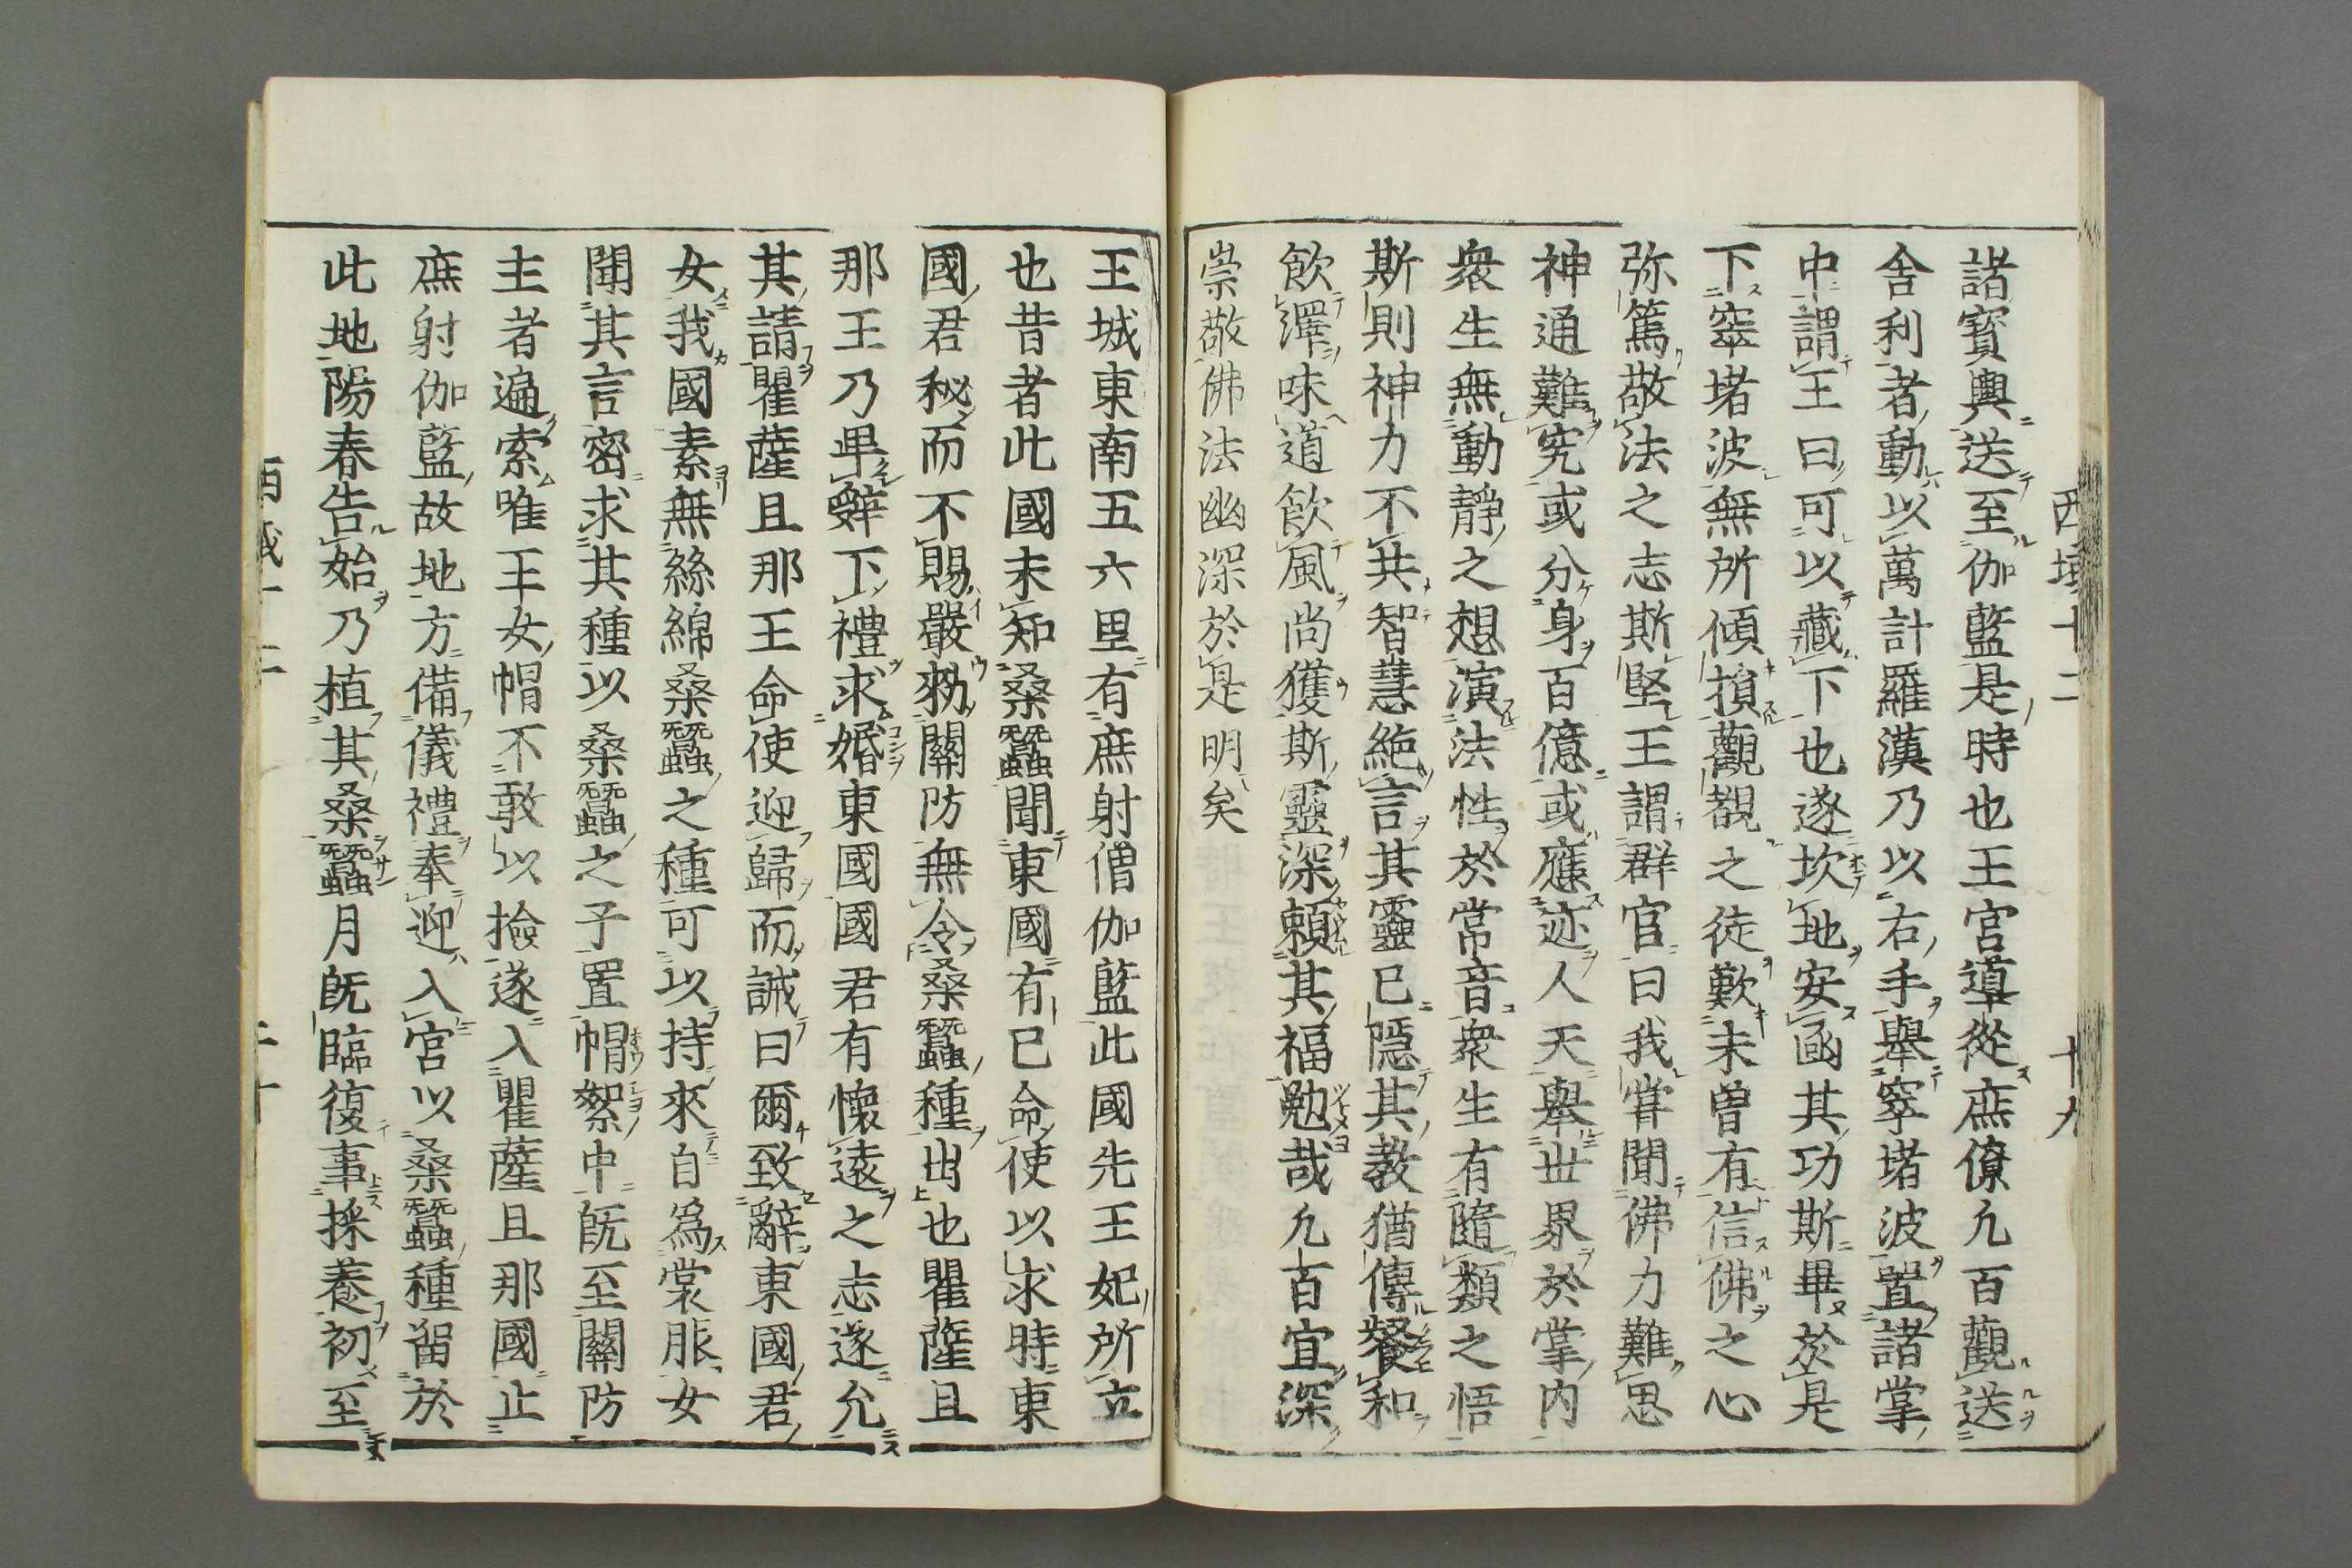 西域十二　十九
諸寳輿送至伽藍是時也王宮導從庶僚凢百觀送
舎利者動以萬計羅漢乃以右手舉窣堵波置諸掌
中謂王曰可以藏下也遂坎地安函其功斯畢於是
下窣堵波無所傾損觀覩之徒歎未曽有信佛之心
弥篤敬法之志斯堅王謂群官曰我甞聞佛力難思
神通難究或分身百億或應迹人天舉丗界於掌内
衆生無動靜之想演法性於常音衆生有隨類之悟
斯則神力不共智慧絶言其靈已隱其教猶傳餐和
飲澤味道飲風尚獲斯靈深頼其福勉哉凢百宜深
崇敬佛法幽深於是明矣
王城東南五六里有庶射僧伽藍此國先王妃所立
也昔者此國未知桒蠶聞東國有已命使以求時東
國君秘而不賜嚴勑關防無令桒蠶種出也瞿薩且
那王乃卑辤下禮求婚東國國君有懷遠之志遂允
其請瞿薩且那王命使迎歸而誡曰爾致辭東國君
女我國素無絲綿桒蠶之種可以持來自為裳服女
聞其言密求其種以桒蠶之子置帽絮中旣至關防
主者遍索唯王女帽不敢以撿遂入瞿薩且那國止
庶射伽藍故地方備儀禮奉迎入宮以桒蠶種畱於
此地陽春告始乃植其桒蠶月旣臨復事採養初至
西域十二　二十